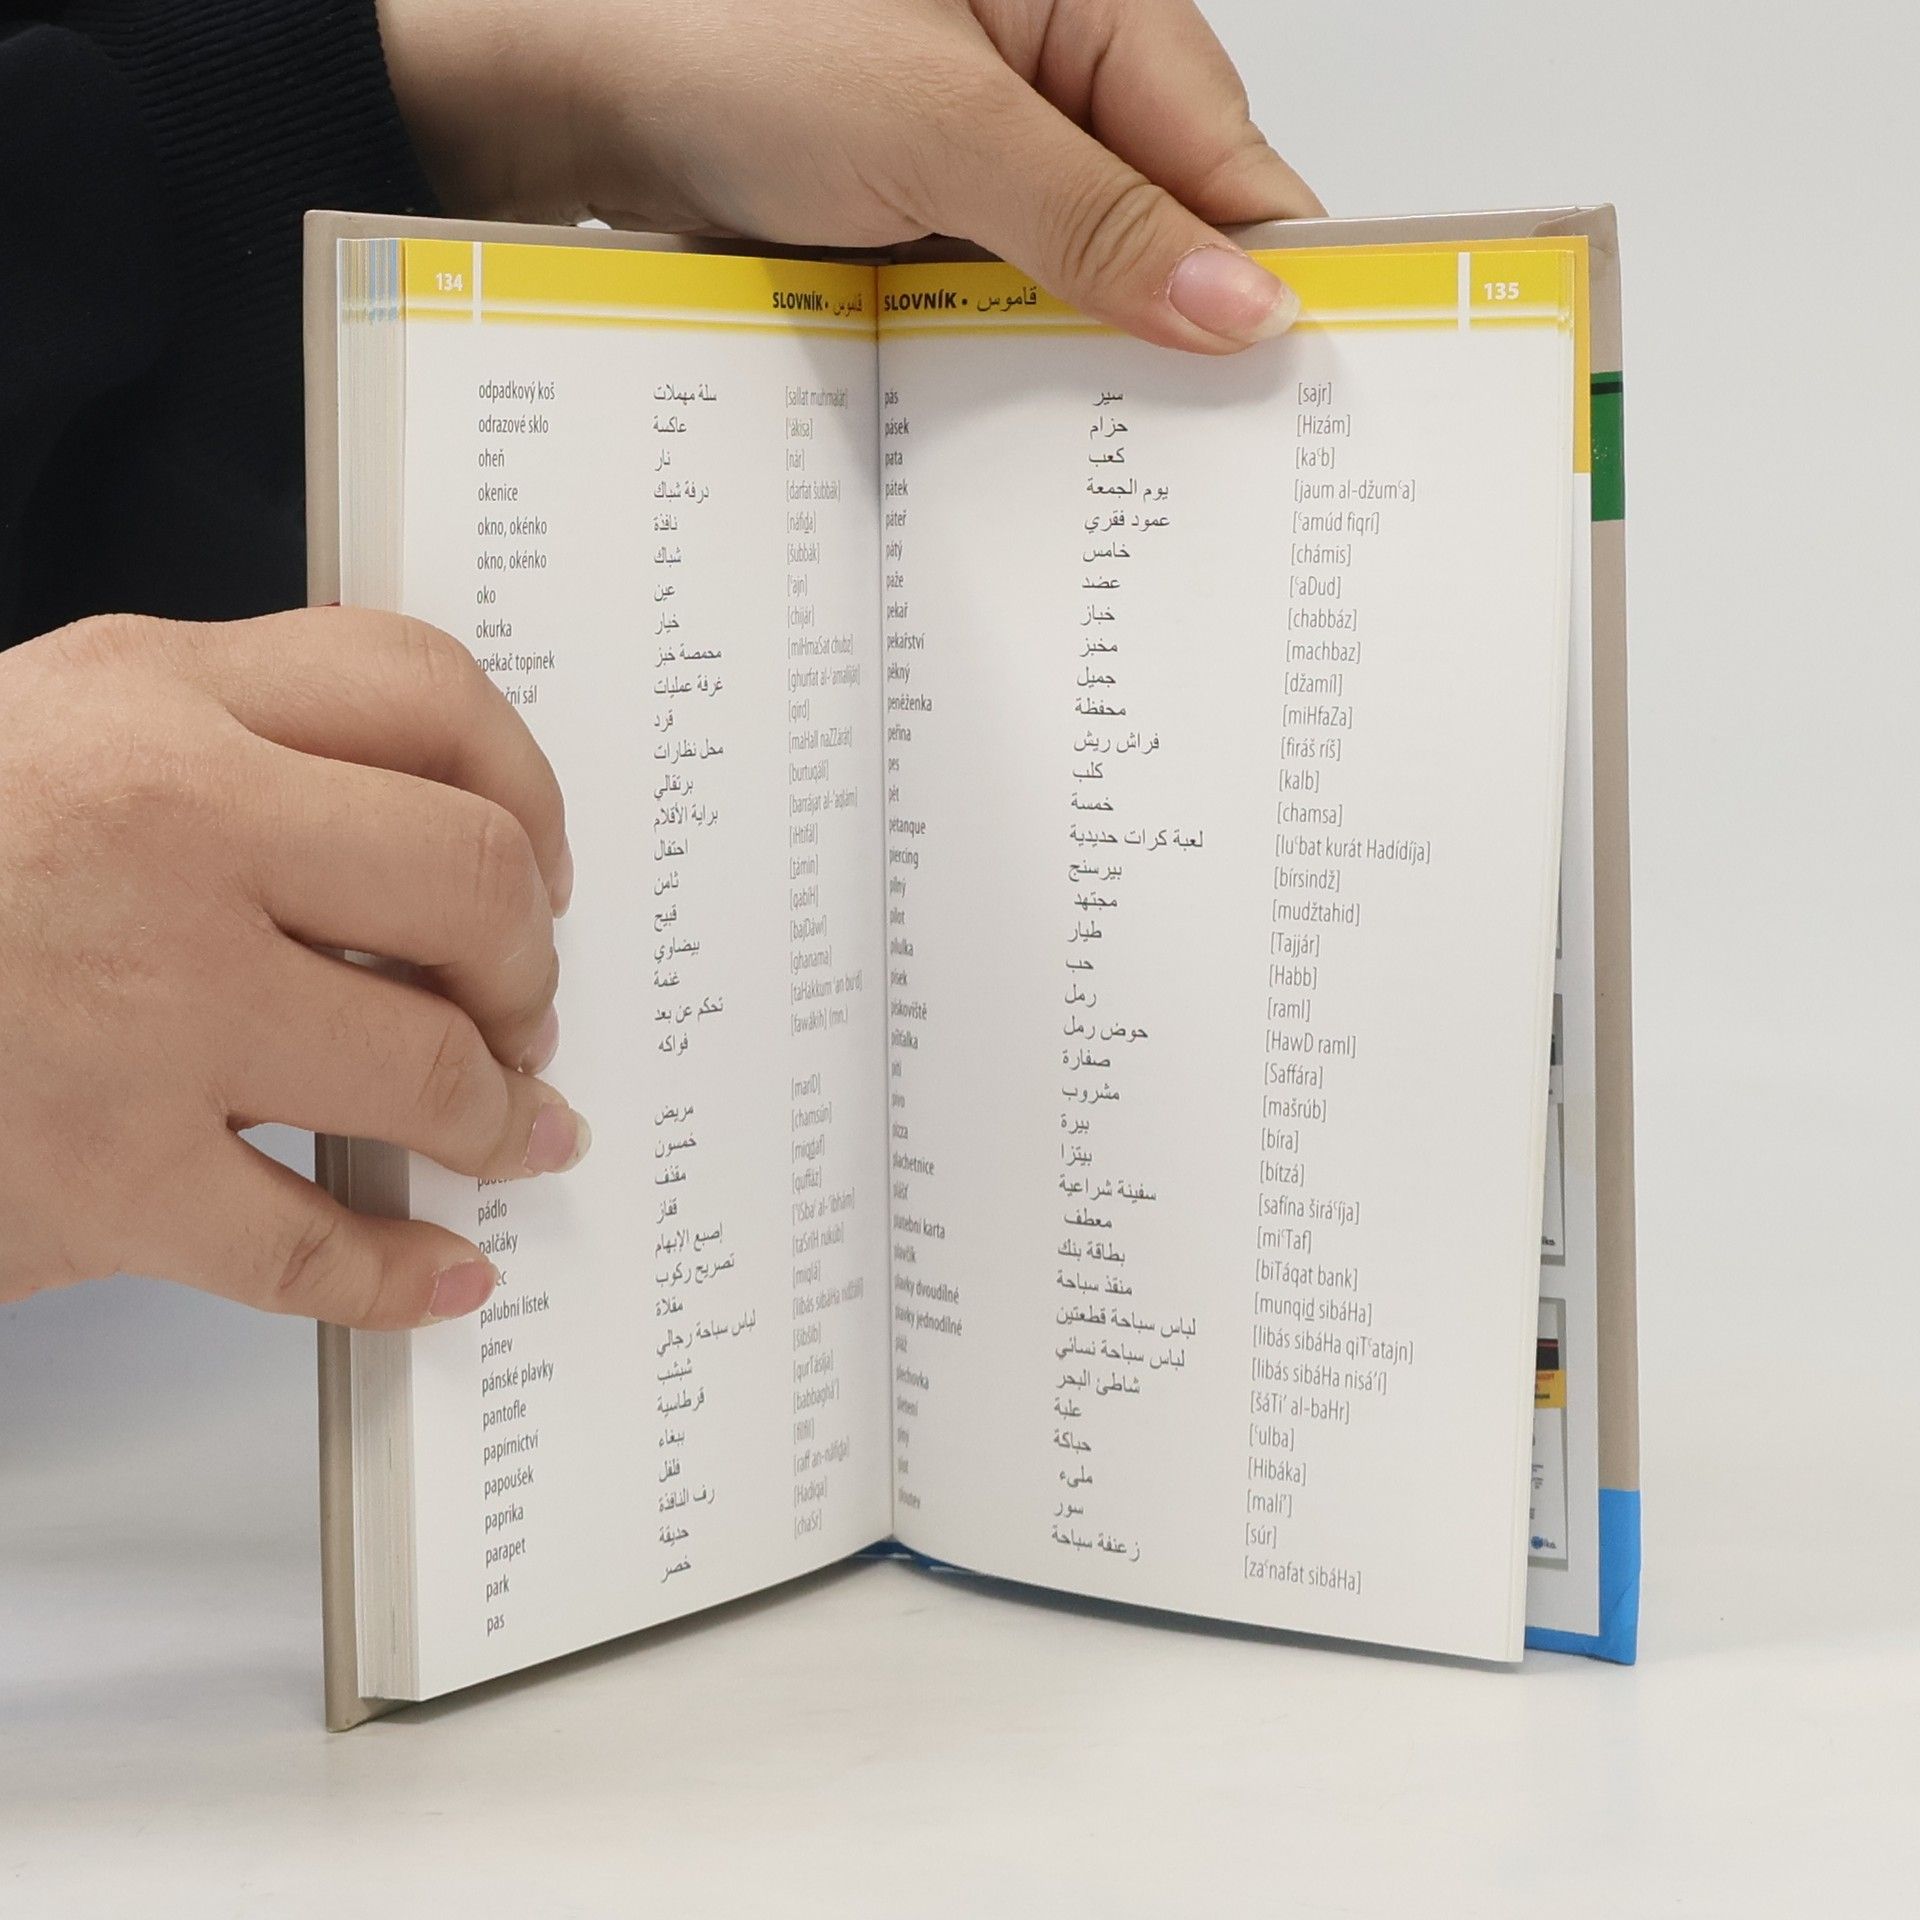 134
SLOVNÍK • قاموس
odpadkový koš سلة مهملات [sallat muhmalát]
odrazové sklo عاكسة [ʿákisa]
oheň نار [nár]
okenice درفة شباك [darfat šubbák]
okno, okénko نافذة [náfiḏa]
okno, okénko شباك [šubbák]
oko عين [ʿajn]
okurka خيار [chijár]
opékač topinek محمصة خبز [miHmaSat chubz]
sál غرفة عمليات [ghurfat al-ʿamalíját]
قرد [qird]
محل نظارات [maHall naZZárát]
برتقالي [burtuqálí]
براية الأقلام [barrájat al-ʼaqlám]
احتفال [iHtifál]
ثامن [ṯámin]
قبيح [qabíH]
بيضاوي [bajDáwí]
غنمة [ghanama]
تحكم عن بعد [taHakkum ʿan buʿd]
فواكه [fawákih] (mn.)
مريض [maríD]
خمسون [chamsún]
مقذف [miqḏaf]
pádlo قفاز [quffáz]
palčáky إصبع الإبهام [ʼiSbaʿ al-ʼibhám]
تصريح ركوب [taSríH rukúb]
palubní lístek مقلاة [miqlá]
pánev لباس سباحة رجالي [libás sibáHa ridžálí]
pánské plavky شبشب [šibšib]
pantofle قرطاسية [qurTásíja]
papírnictví ببغاء [babbagháʼ]
papoušek فلفل [filfil]
paprika رف النافذة [raff an-náfiḏa]
parapet حديقة [Hadíqa]
park خصر [chaSr]
pas
SLOVNÍK • قاموس
135
pás سير [sajr]
pásek حزام [Hizám]
pata كعب [kaʿb]
pátek يوم الجمعة [jaum al-džumʿa]
páteř عمود فقري [ʿamúd fiqrí]
pátý خامس [chámis]
paže عضد [ʿaDud]
pekař خباز [chabbáz]
pekařství مخبز [machbaz]
pěkný جميل [džamíl]
peněženka محفظة [miHfaZa]
peřina فراش ريش [firáš ríš]
pes كلب [kalb]
pět خمسة [chamsa]
petanque لعبة كرات حديدية [luʿbat kurát Hadídíja]
piercing بيرسنج [bírsindž]
pilný مجتهد [mudžtahid]
pilot طيار [Tajjár]
pilulka حب [Habb]
písek رمل [raml]
pískoviště حوض رمل [HawD raml]
píšťalka صفارة [Saffára]
pití مشروب [mašrúb]
pivo بيرة [bíra]
pizza بيتزا [bítzá]
plachetnice سفينة شراعية [safína širáʿíja]
plášť معطف [miʿTaf]
platební karta بطاقة بنك [biTáqat bank]
plavčík منقذ سباحة [munqiḏ sibáHa]
plavky dvoudílné لباس سباحة قطعتين [libás sibáHa qiTʿatajn]
plavky jednodílné لباس سباحة نسائي [libás sibáHa nisáʼí]
pláž شاطئ البحر [šáTiʼ al-baHr]
plechovka علبة [ʿulba]
pletení حباكة [Hibáka]
plný مليء [malíʼ]
plot سور [súr]
ploutev زعنفة سباحة [zaʿnafat sibáHa]